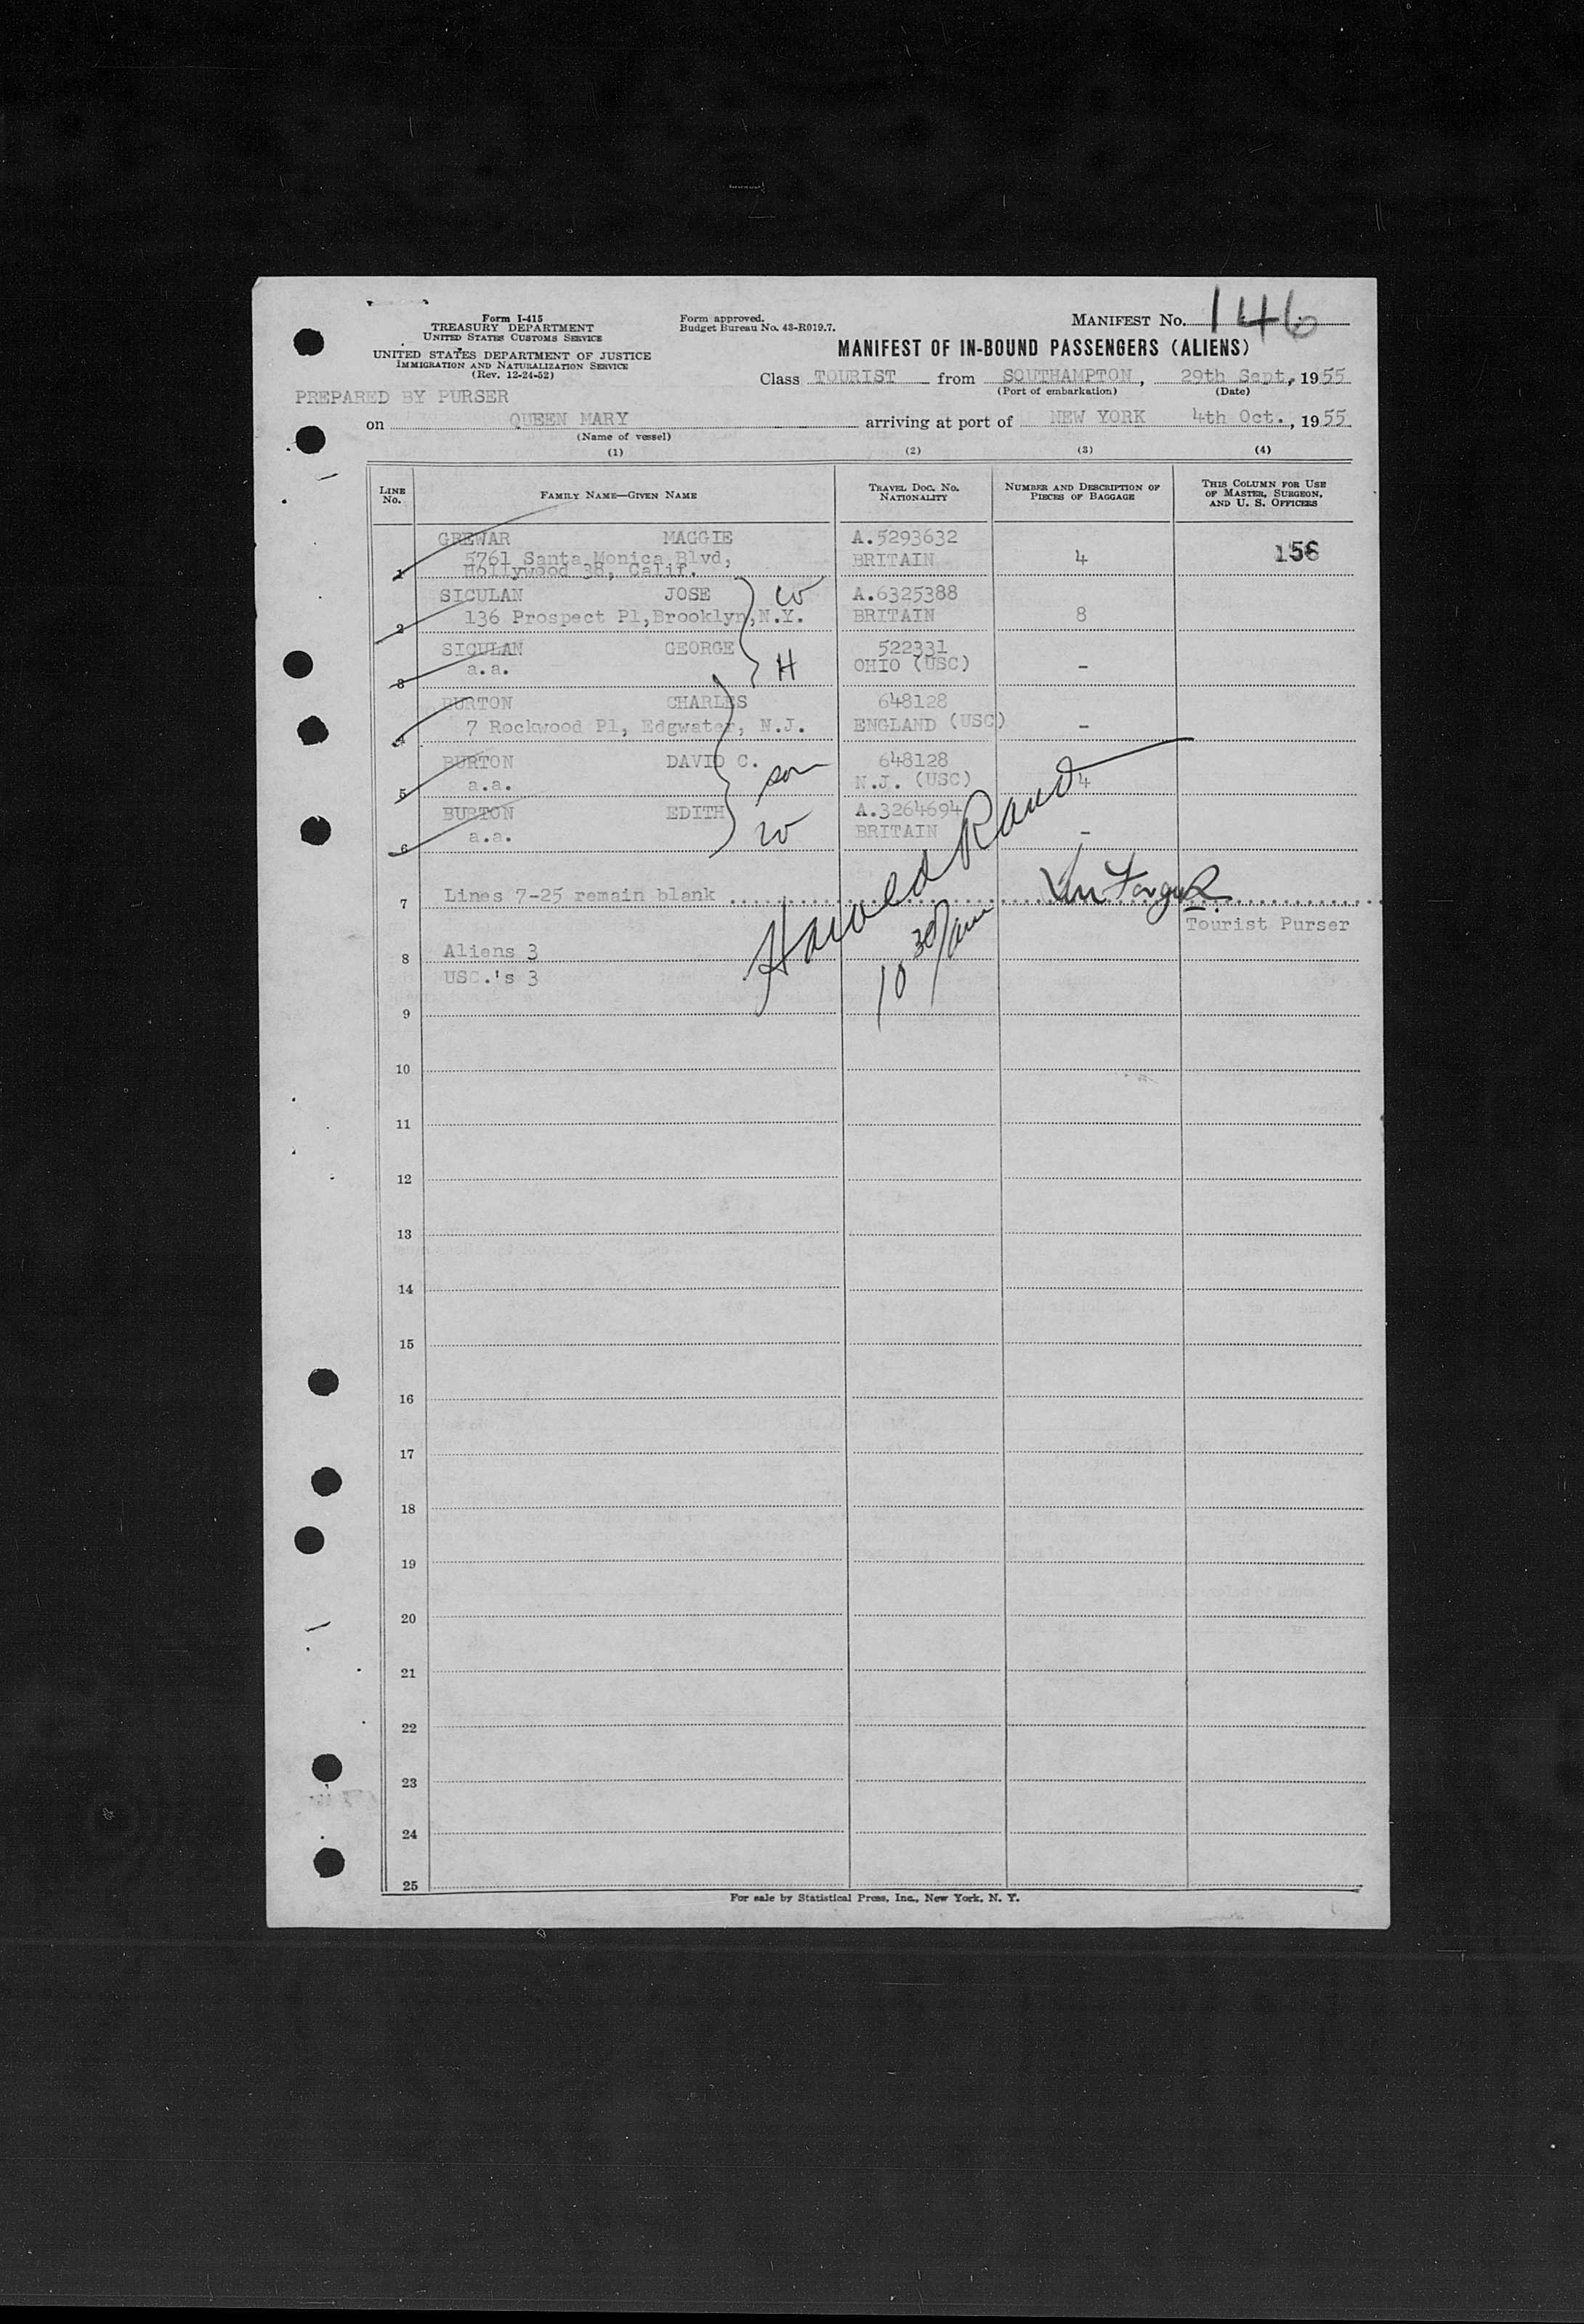 Form I-415
TREASURY DEPARTMENT
UNITED STATES CUSTOMS SERVICE
UNITED STATES DEPARTMENT OF JUSTICE
IMMIGRATION AND NATURALIZATION SERVICE
(Rev. 12-24-52)
Form approved.
Budget Bureau No. 43-R019.7.
MANIFEST No. 146
MANIFEST OF IN-BOUND PASSENGERS (ALIENS)
Class TOURIST from SOUTHAMPTON, 29th Sept, 1955
(Port of embarkation) (Date)
PREPARED BY PURSER
on QUEEN MARY arriving at port of NEW YORK 4th Oct., 1955
(Name of vessel)
(1) (2) (3) (4)
LINE No. FAMILY NAME—GIVEN NAME TRAVEL DOC. NO. NATIONALITY NUMBER AND DESCRIPTION OF PIECES OF BAGGAGE THIS COLUMN FOR USE OF MASTER, SURGEON, AND U. S. OFFICERS
GREWAR MAGGIE A.5293632
5761 Santa Monica Blvd, BRITAIN 4 156
1 Hollywood 38, Calif.
SICULAN JOSE W A.6325388
2 136 Prospect Pl, Brooklyn, N.Y. BRITAIN 8
SICULAN GEORGE 522331
3 a.a. H OHIO (USC) -
BURTON CHARLES 648128
4 7 Rockwood Pl, Edgwater, N.J. ENGLAND (USC) -
BURTON DAVID C. son 648128
5 a.a. N.J. (USC) 4
BURTON EDITH A.3264694
6 a.a. W BRITAIN -
Harold Rand
10 30/am
7 Lines 7-25 remain blank
Tourist Purser
8 Aliens 3
USC.'s 3
9
10
11
12
13
14
15
16
17
18
19
20
21
22
23
24
25
For sale by Statistical Press, Inc., New York, N. Y.